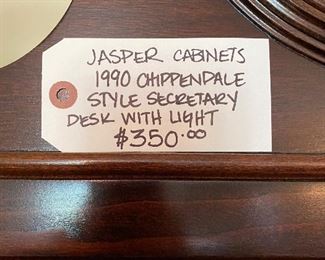 JASPER CABINETS
1990 CHIPPENDALE
STYLE SECRETARY
DESK WITH LIGHT
$350.00